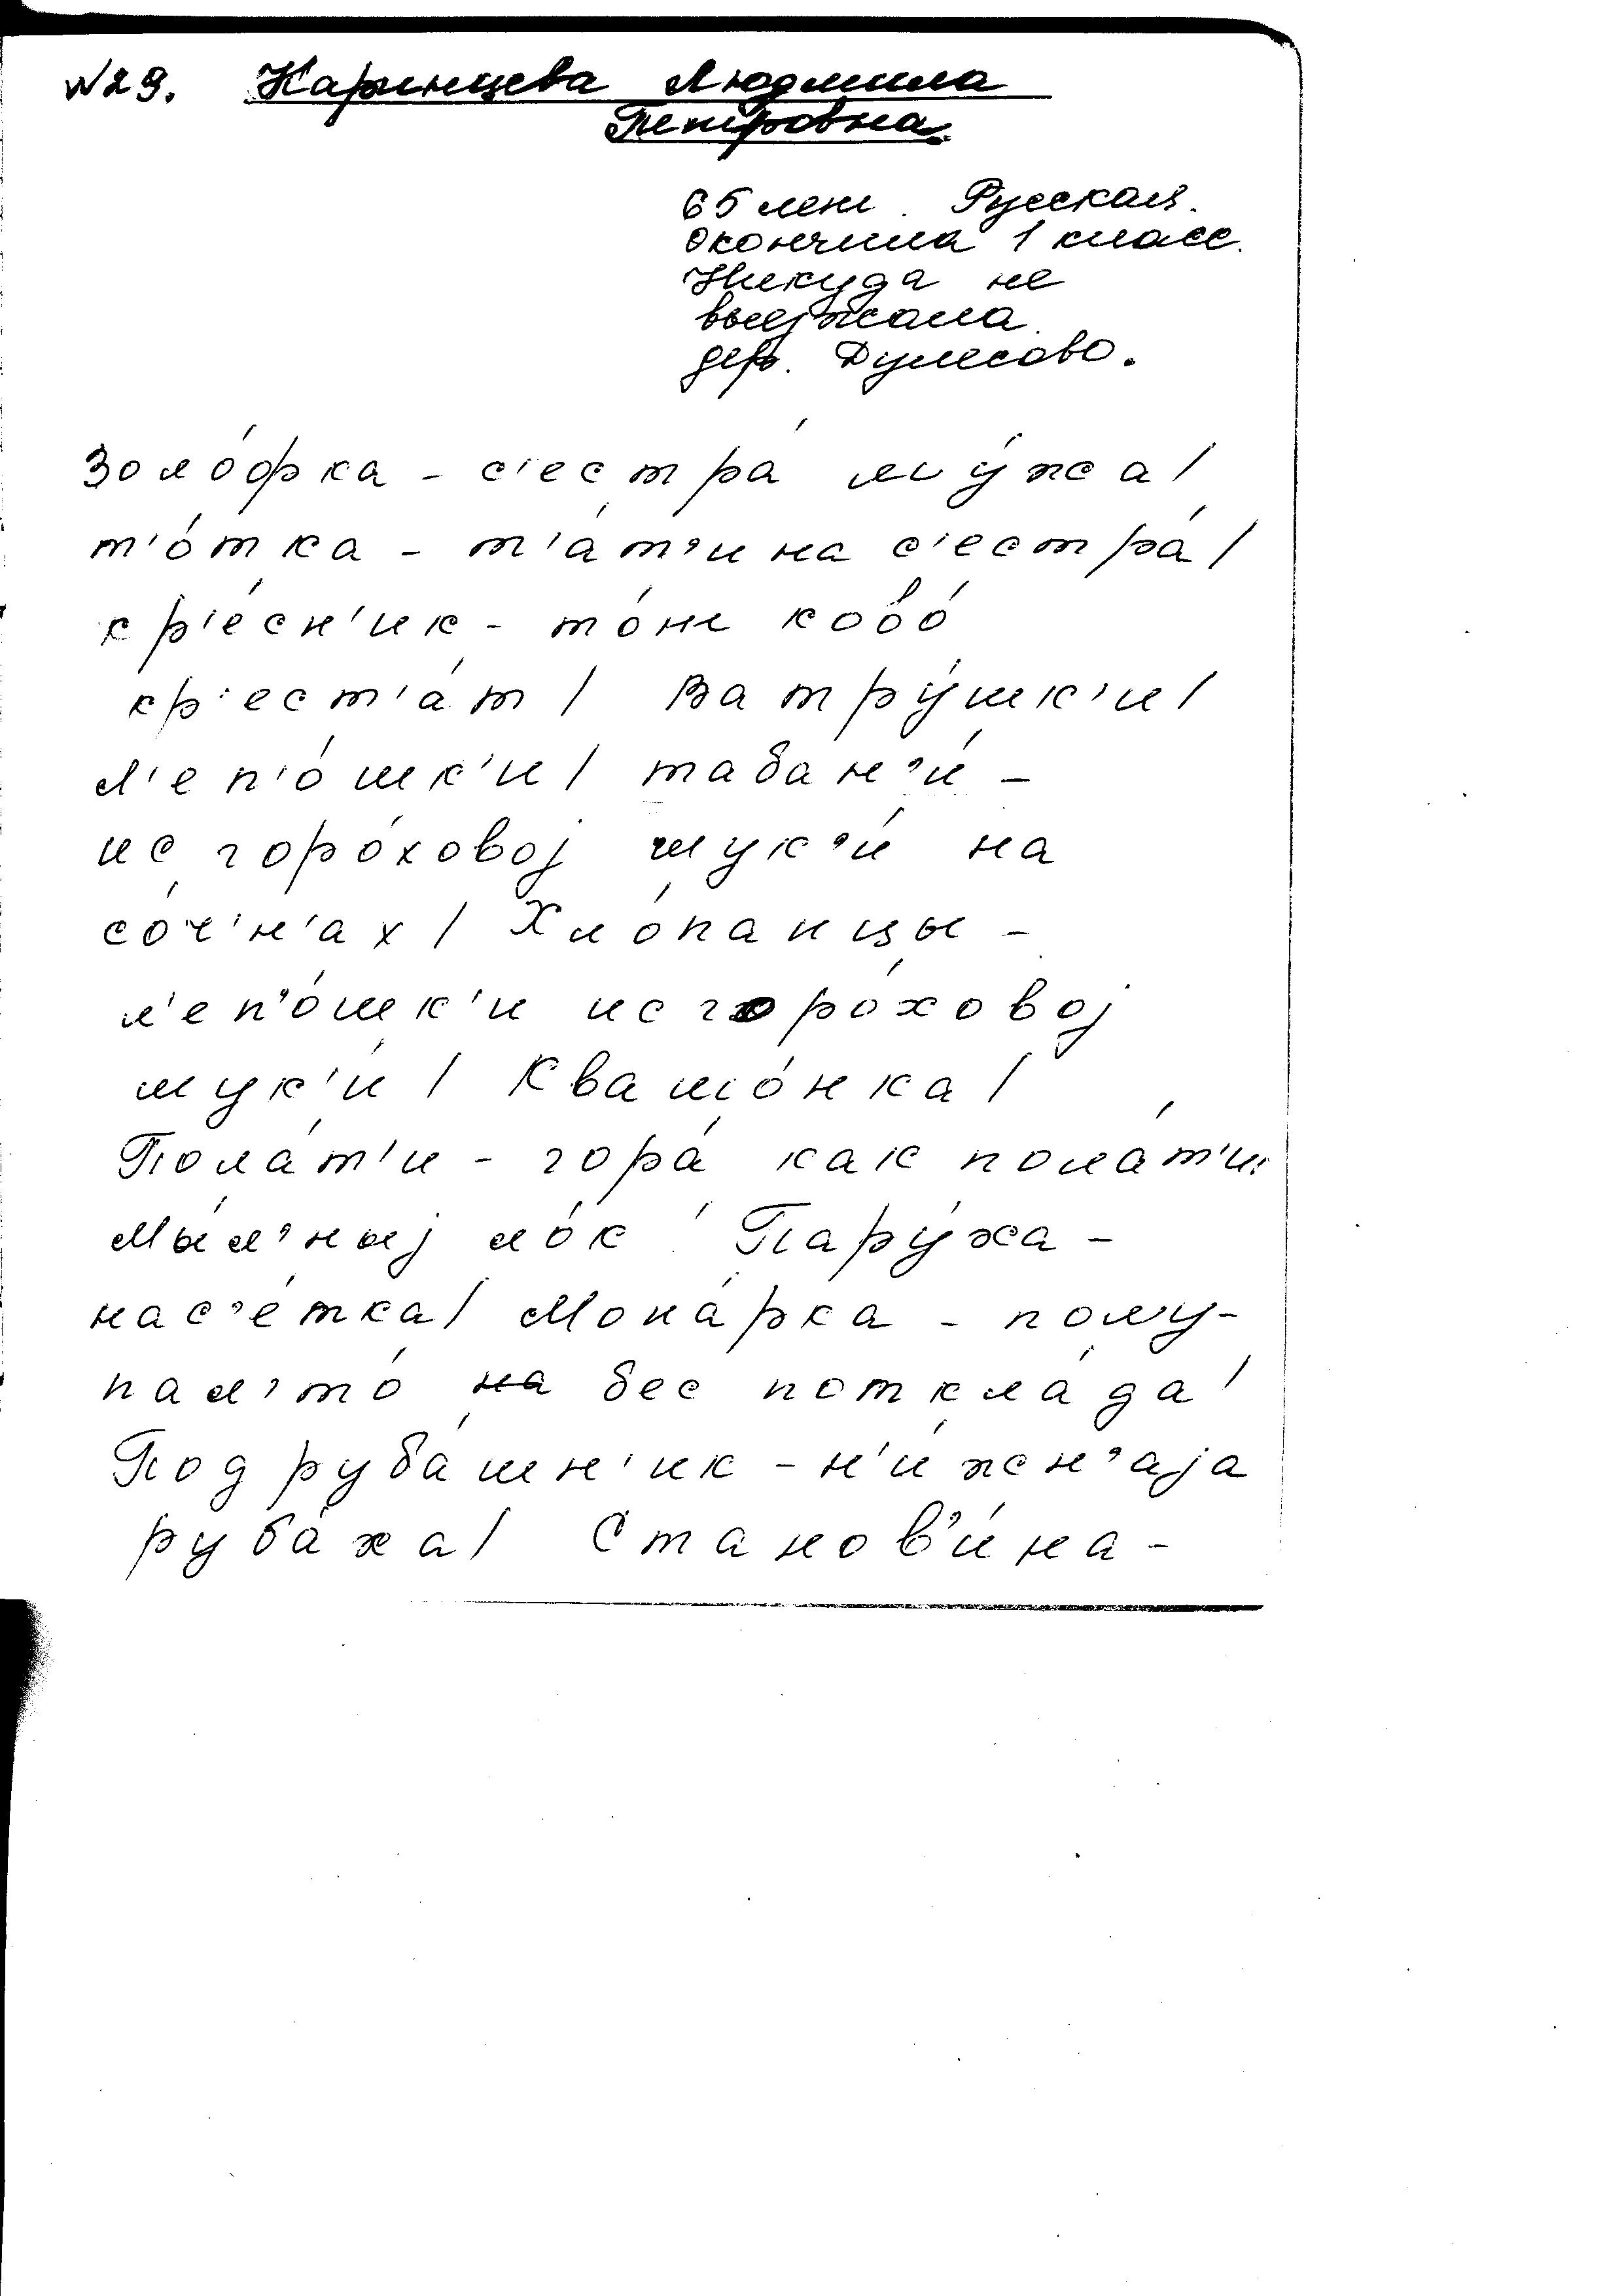 №29. Каринцева Людмила
Петровна.
65 лет. Русская.
Окончила 1 класс.
Никуда не
выезжала.
дер. Думсово.
Золо́фка - с'естра́ му́жа /
т'о́тка - т'а́т'ина с'естра́ /
кр'е́сн'ик - то́ш ково́
кр'ест'а́т / Ватру́шк'и /
Л'еп'о́шк'и / табан'и́ -
ис горо́ховој мук'и́ на
со́ч'н'ах / Хло́панцы -
л'еп'о́шк'и ис горо́ховој
мук'и́ / Квашо́нка /
Пола́т'и - гора́ как пола́т'и /
Мы́л'ныј ло́к / Пару́жа -
нас'е́тка / Мона́рка - полу-
пал'то́ на бес поткла́да /
Подруба́шн'ик - н'и́жн'аја
руба́ха / Станов'и́на -